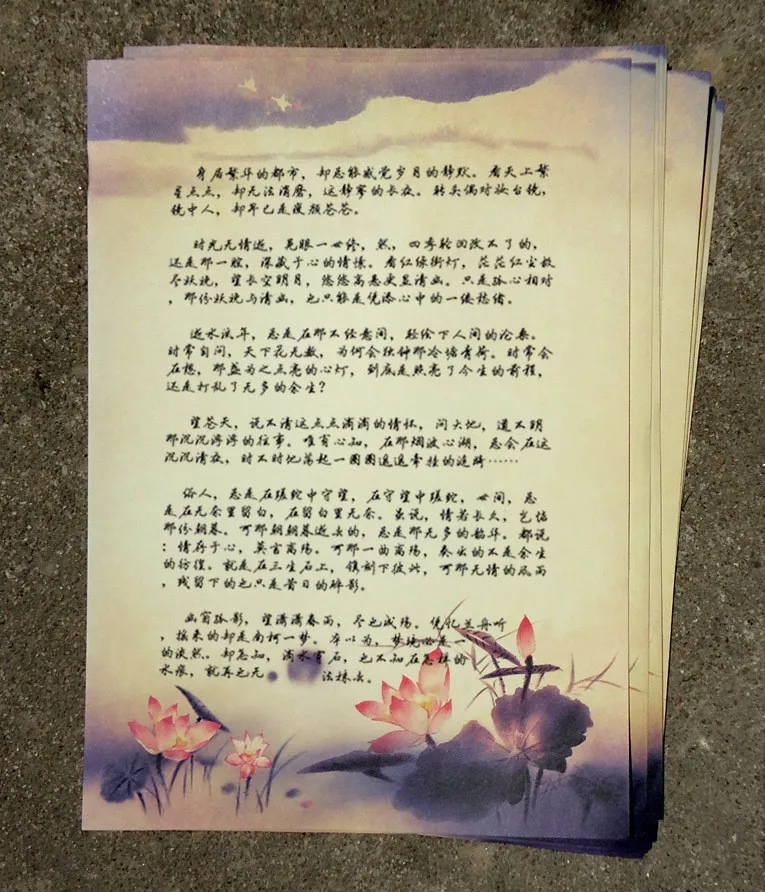 身居繁华的都市，却总能感觉岁月的静默。看天上繁
星点点，却无法消磨，这静寥的长夜。转头偶对妆台镜，
镜中人，却早已是疲颜苍苍。
时光无情逝，晃眼一世终，然，四季轮回改不了的，
还是那一腔，深藏于心的情愫。看红绿街灯，茫茫红尘数
尽妖娆，望长空明月，悠悠高悬更显清幽。只是孤心相对
，那份妖娆与清幽，也只能是凭添心中的一缕愁绪。
逝水流年，总是在那不经意间，轻绘下人间的沧桑。
时常自问，天下花无数，为何会独钟那冷塘青荷。时常会
在想，那盏为之点亮的心灯，到底是照亮了今生的前程，
还是打乱了无多的余生？
望苍天，说不清这点点滴滴的情怀，问大地，道不明
那沉沉浮浮的往事。唯有心知，在那烟波心湖，总会在这
沉沉清夜，时不时地荡起一圈圈遥遥牵挂的涟漪……
俗人，总是在蹉跎中守望，在守望中蹉跎，世间，总
是在无奈里留白，在留白里无奈。虽说，情若长久，岂怕
那份朝暮。可那朝朝暮逝去的，总是那无多的韶华。都说
：情存于心，莫言离殇。可那一曲离殇，奏出的不是余生
的彷徨。就是在三生石上，镌刻下彼此，可那无情的风雨
，残留下的也只是昔日的碎影。
幽窗孤影，望潇潇春雨，尽也成殇。凭阑兰舟听
，摇来的却是南柯一梦。本以为，梦境必是一
的淡然。却怎知，滴水穿石，也不知在怎样的
水痕，就再也无 法抹去。